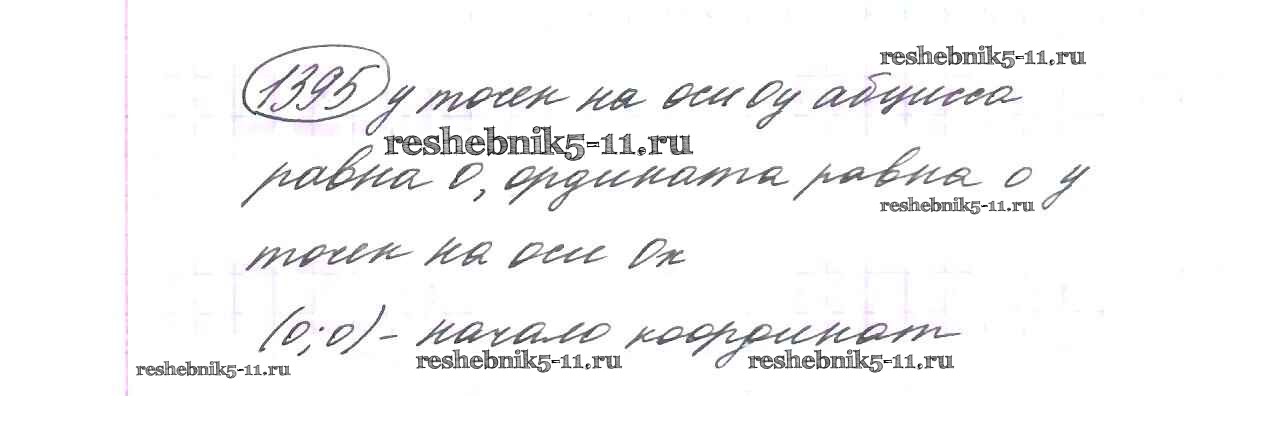 reshebnik5-11.ru
1395 у точек на оси Oy абцисса
reshebnik5-11.ru
равна 0, ордината равна 0 у
reshebnik5-11.ru
точек на оси Ox
(0;0) - начало координат
reshebnik5-11.ru reshebnik5-11.ru reshebnik5-11.ru